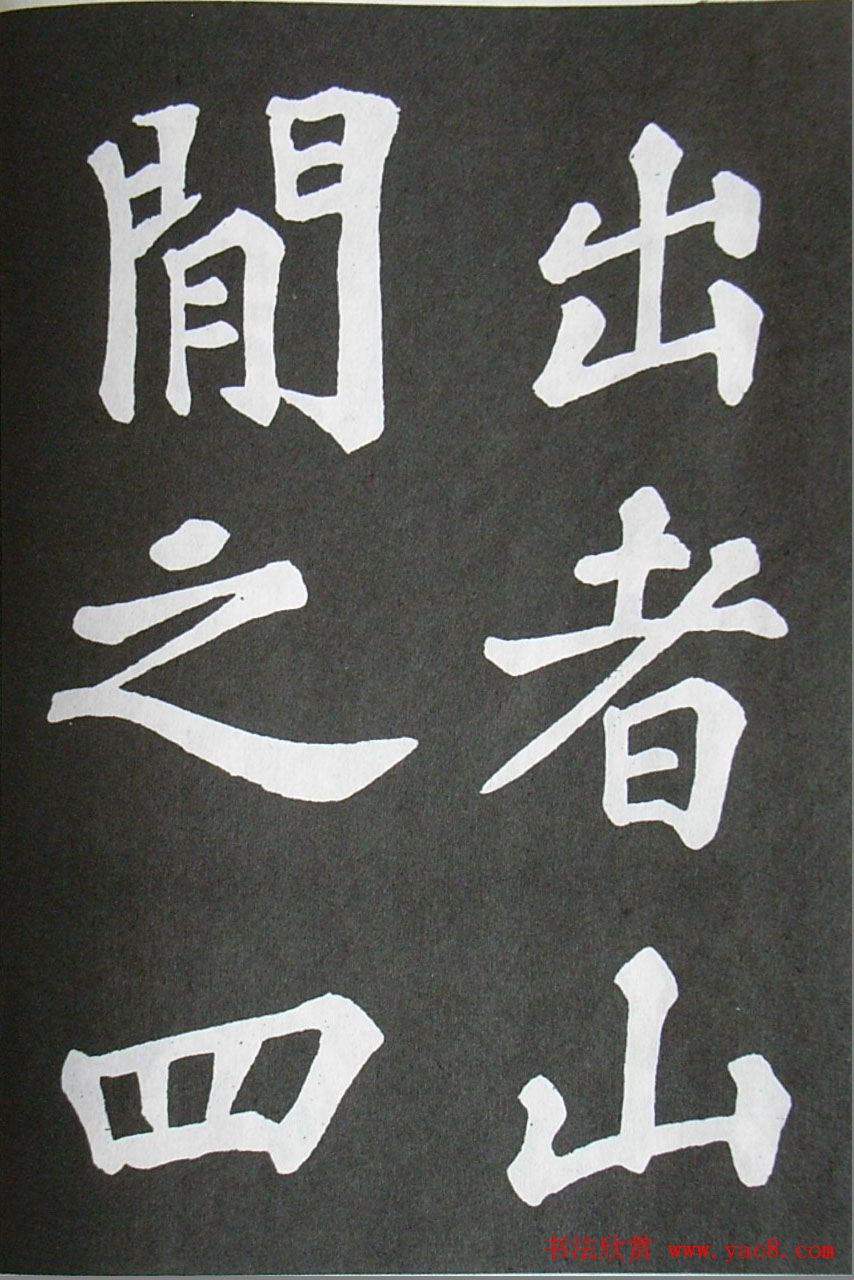 出者山
閒之四
书法欣赏 www.yac8.com